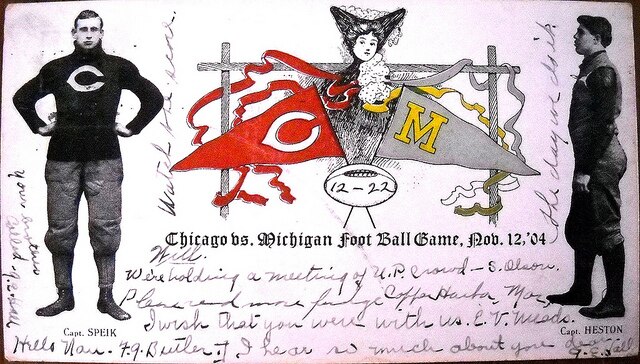 C
C
M
Watch the score.
the day we do it
12-22
Chicago vs. Michigan Foot Ball Game, Nov. 12,'04
Will.
We're holding a meeting of U.P. Crowd - S. Olson.
Please send more fudge Copper Harbor, Mo
I wish that you were with us. E.V.
Capt. SPEIK
Capt. HESTON
Hello Nan. F.G. Butler. I hear so much about you dear